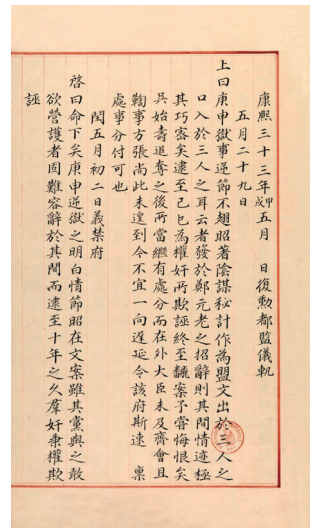 康熙三十三年甲戌五月　日復勳都監儀軌
五月二十九日
上曰庚申獄事逆節不翅昭著陰謀秘計作為盟文出於三人之
口入於三人之耳云者發於鄭元老之招辭則其間情迹極
其巧密矣逮至己巳為權奸所欺誣終至飜案予嘗悔恨矣
吳始壽追奪之後所當繼有處分而在外大臣未及齊會且
鞫事方張尚此未遑到今不宜一向遲延令該府斯速　稟
處事分付可也
閏五月初二日義禁府
啓曰命下矣庚申逆獄之明白情節昭在文案雖其黨與之敢
欲營護者固難容辭於其間而逮至十年之久羣奸秉權欺
誣